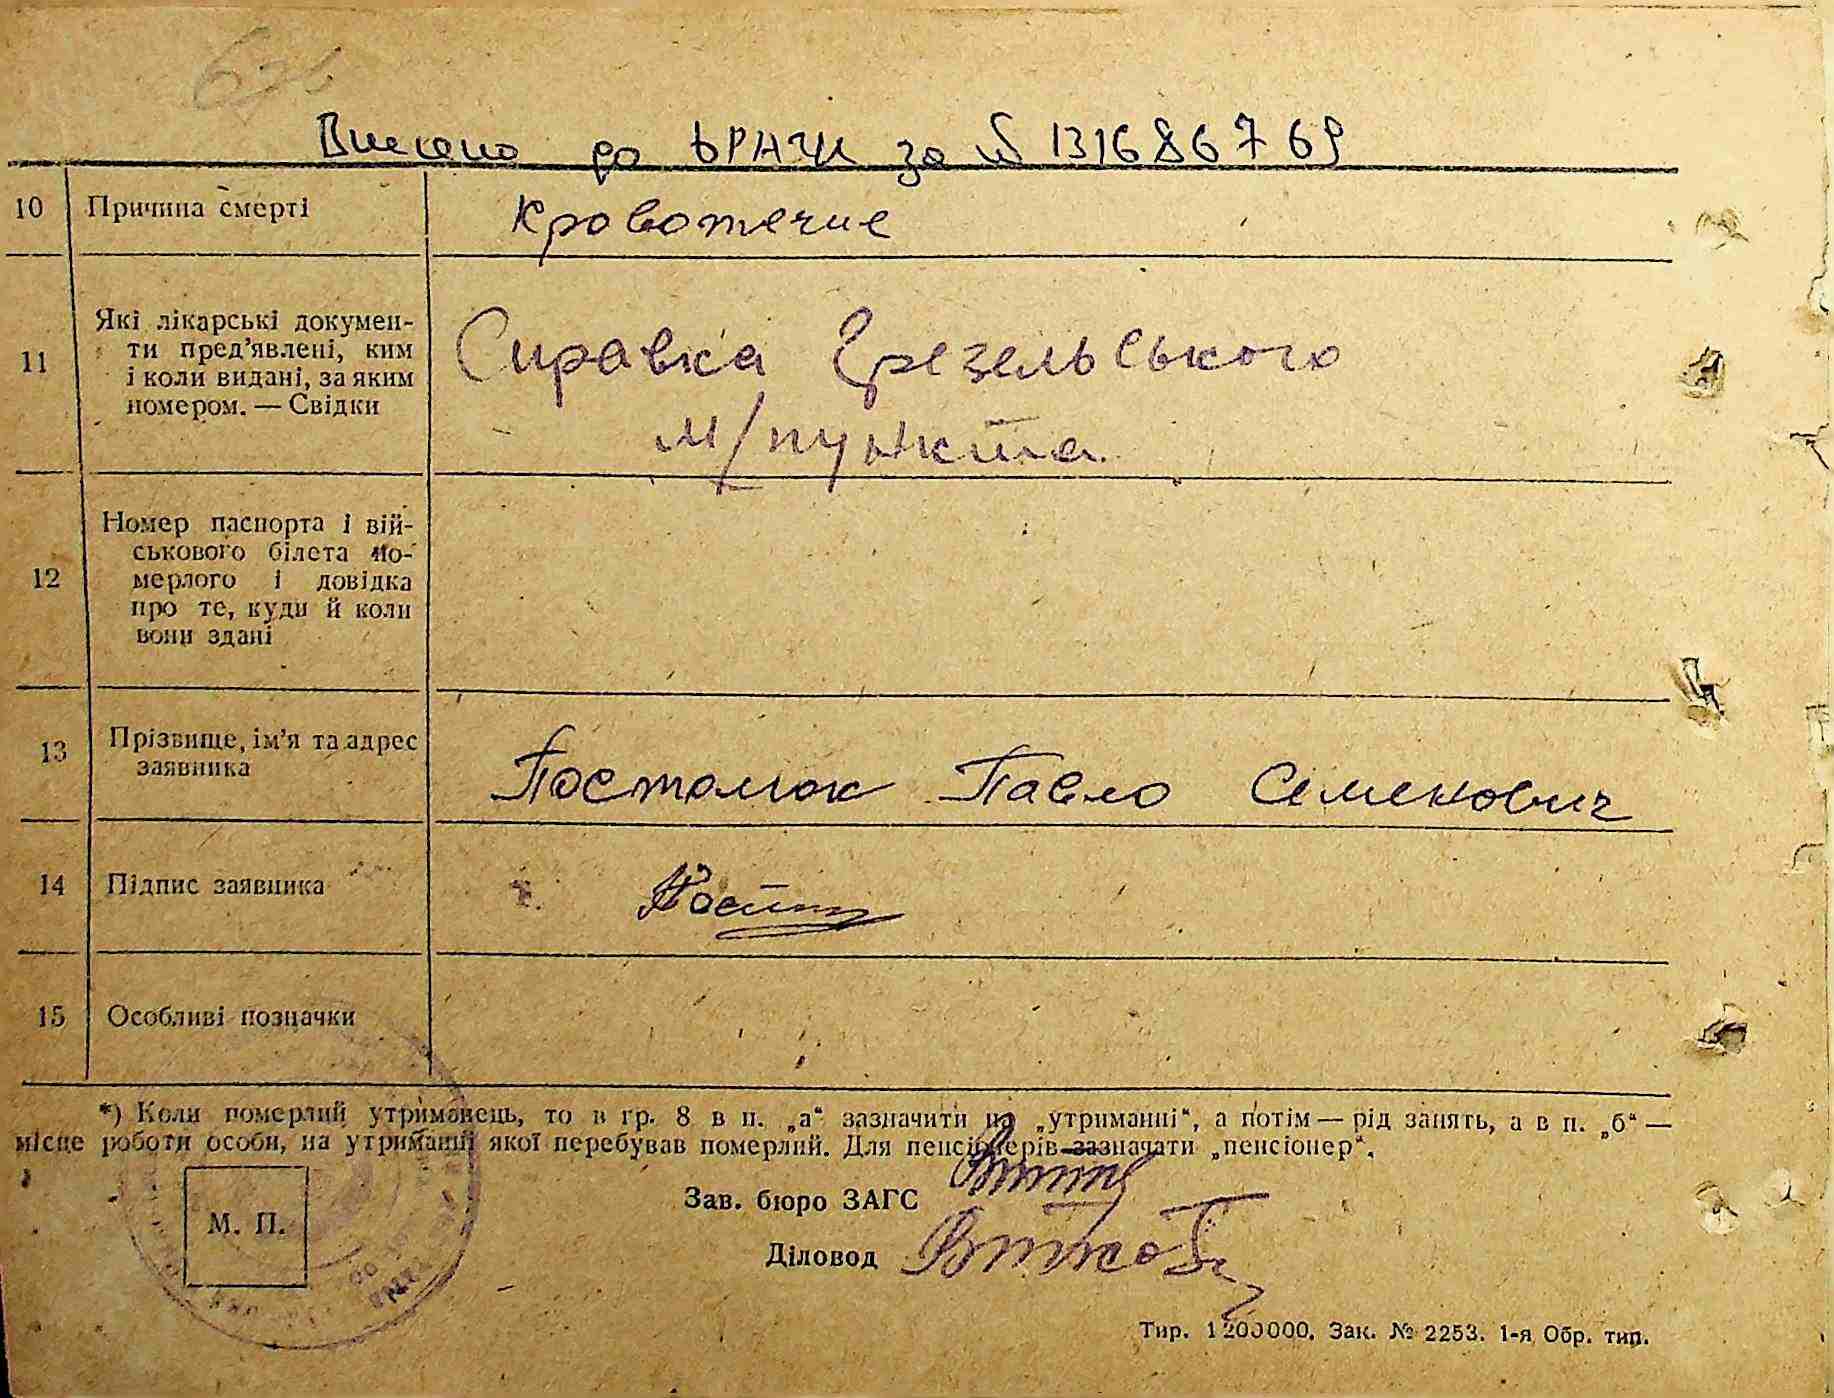 Внесено до ЬРАЦС за № 131686769
10 Причина смерті Кровотечие
11 Які лікарські докумен-
ти пред'явлені, ким
і коли видані, за яким
номером. — Свідки
Справка
м/пункта.
12 Номер паспорта і вій-
ськового білета по-
мерлого і довідка
про те, куди й коли
вони здані
13 Прізвище, ім'я та адрес
заявника
Постолюк Павло Семенович
14 Підпис заявника
15 Особливі позначки
*) Коли померлий утриманець, то в гр. 8 в п. „а“ зазначити на „утриманні“, а потім — рід занять, а в п. „б“ —
місце роботи особи, на утриманні якої перебував померлий. Для пенсіонерів зазначати „пенсіонер“.
Зав. бюро ЗАГС
М. П.
Діловод
Тир. 1200000. Зак. № 2253. 1-я Обр. тип.